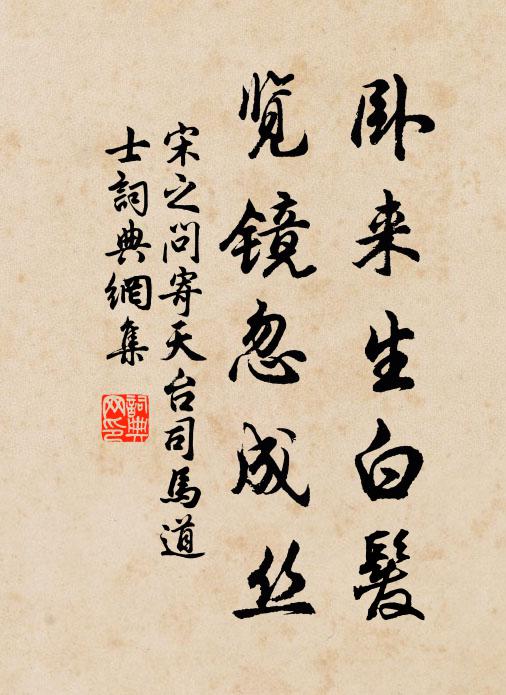 卧来生白髮
览镜忽成丝
宋之问寄天台司馬道
士詞典網集
詞典
网印